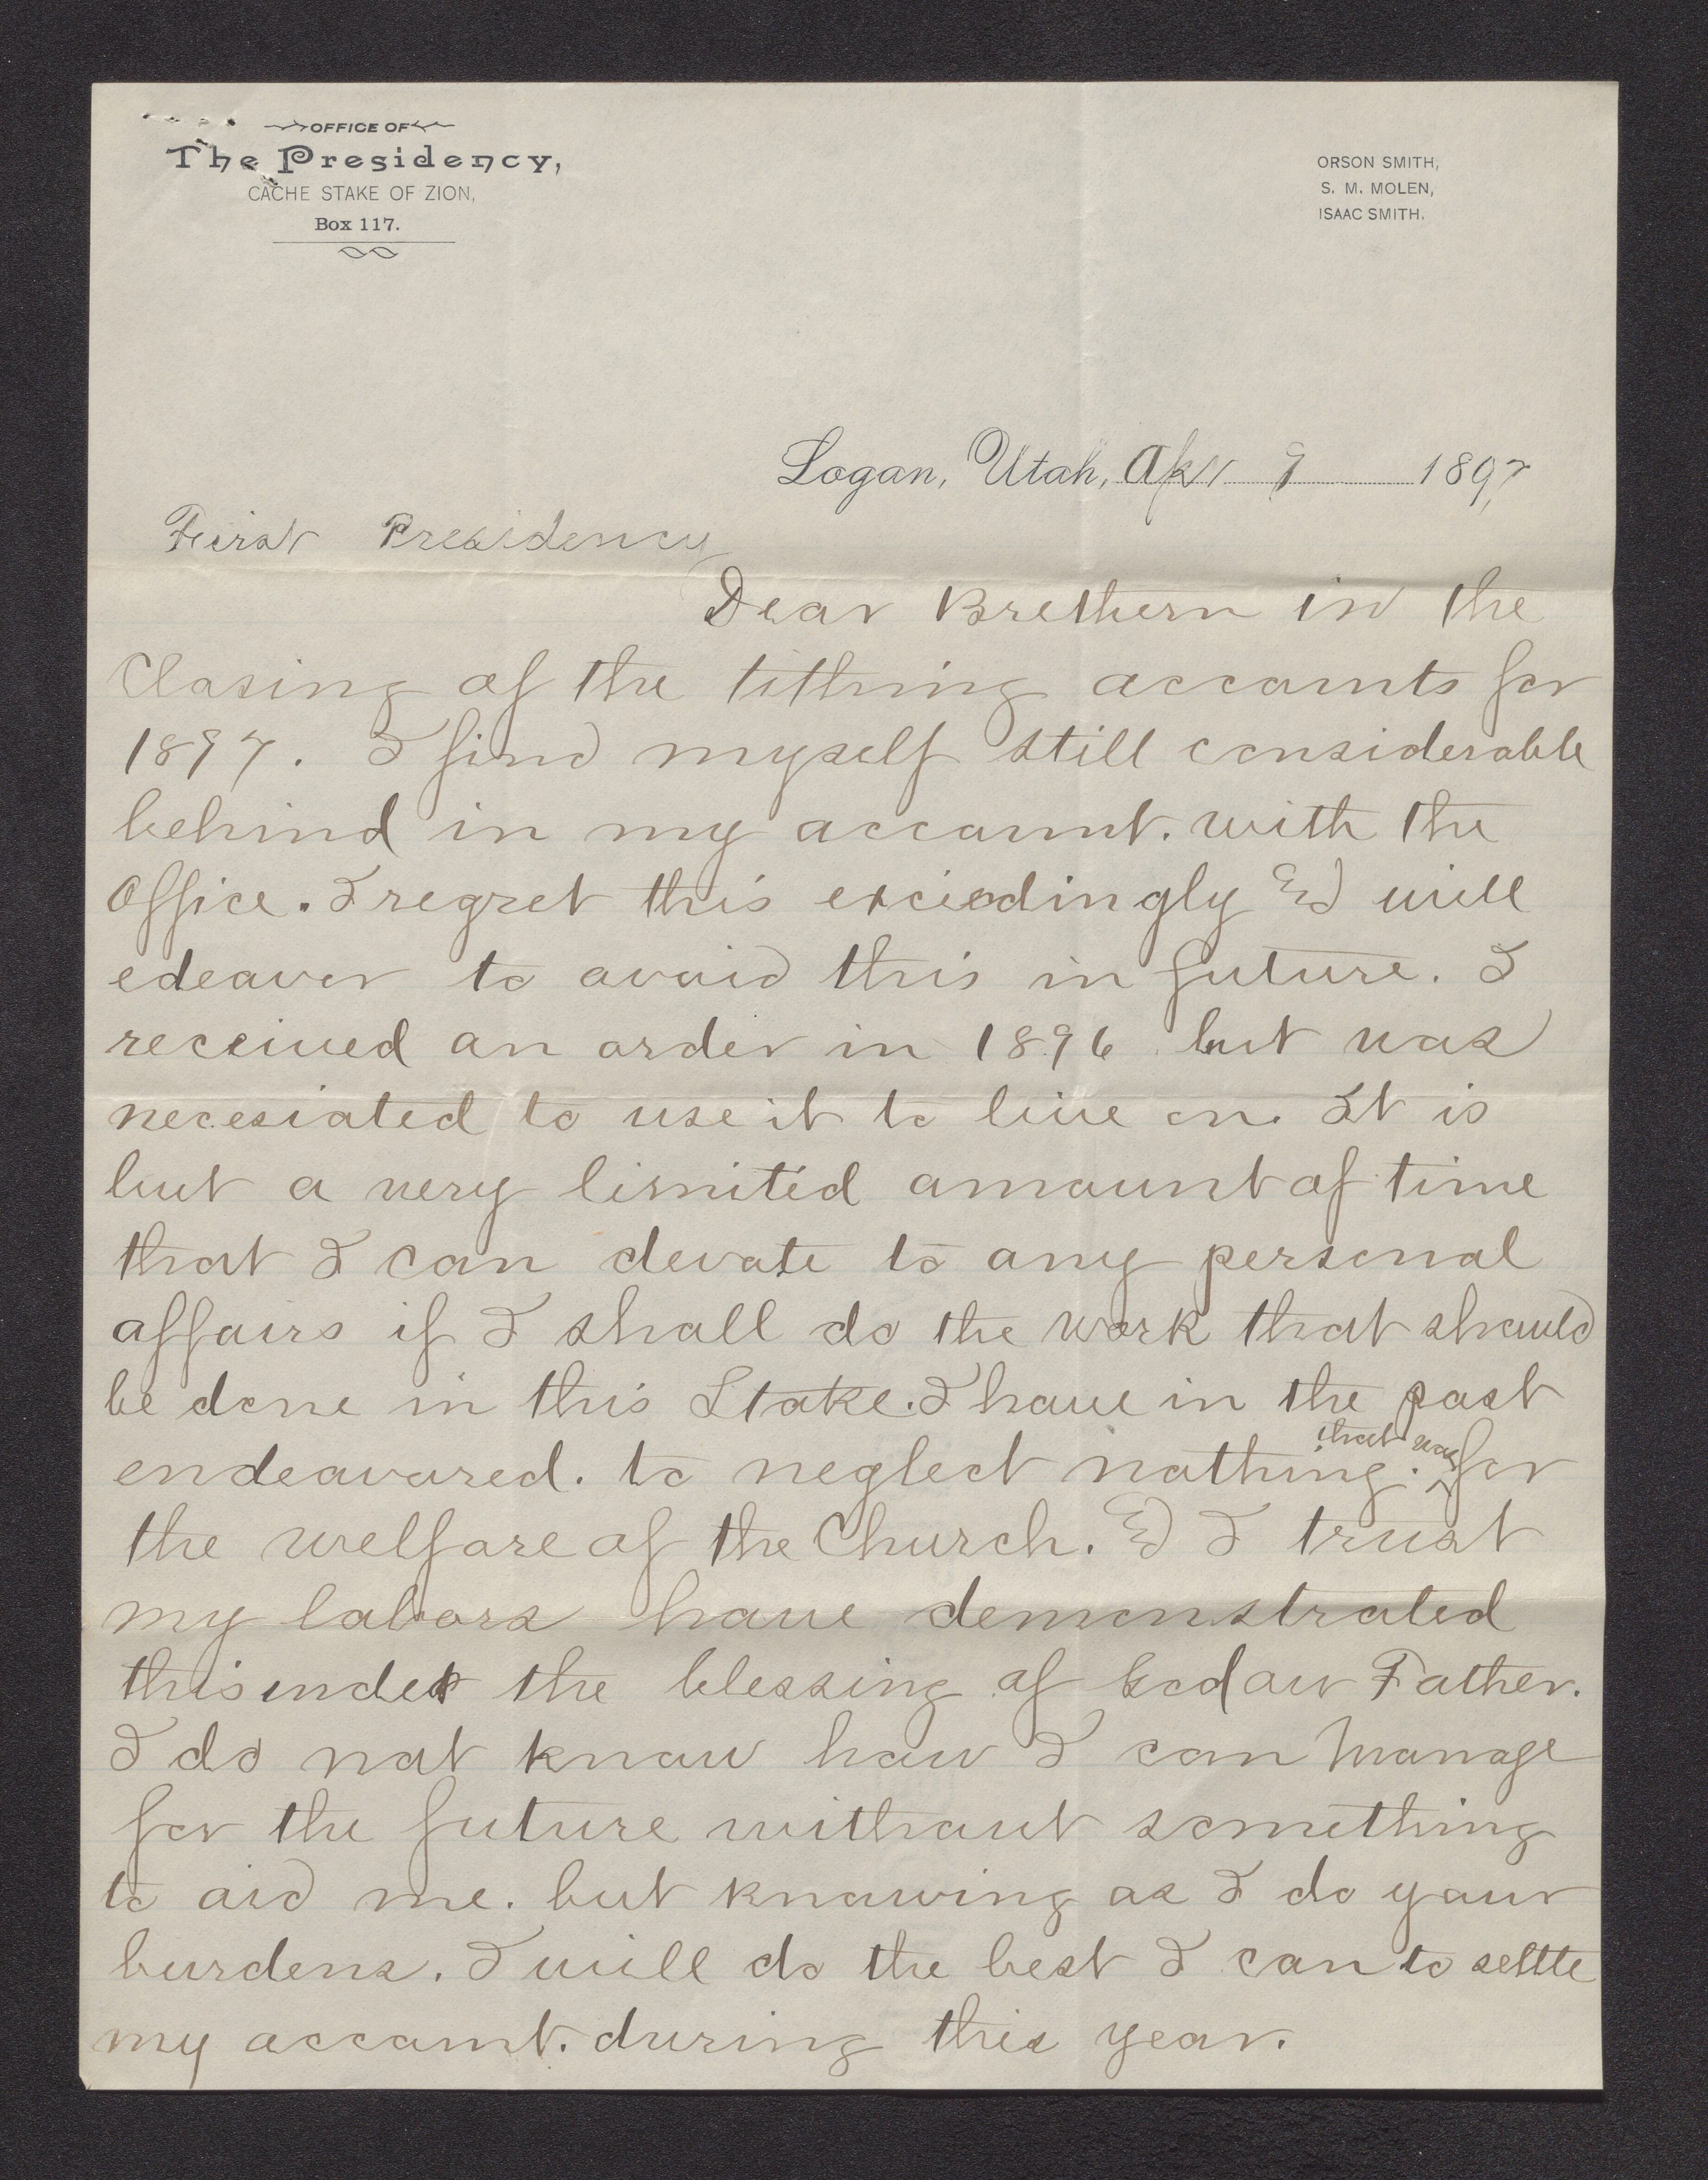 OFFICE OF
The Presidency,
CACHE STAKE OF ZION,
Box 117.
ORSON SMITH,
S. M. MOLEN,
ISAAC SMITH.
Logan, Utah, Apr 9 1897
First Presidency
Dear Brethern in the
Closing of the tithing accounts for
1897. I find myself still considerable
behind in my account. with the
Office. I regret this exceedingly & will
edeavor to avoid this in future. I
received an order in 1896 but was
necesiated to use it to live on. It is
but a very limited amount of time
that I can devote to any personal
affairs if I shall do the work that should
be done in this Stake. I have in the past
endeavored. to neglect nothing. that was for
the welfare of the Church. & I trust
my labors have demonstrated
this under the blessing of God our Father.
I do not know how I can Manage
for the future without something
to aid me. but knowing as I do your
burdens. I will do the best I can to settte
my account. during this year.